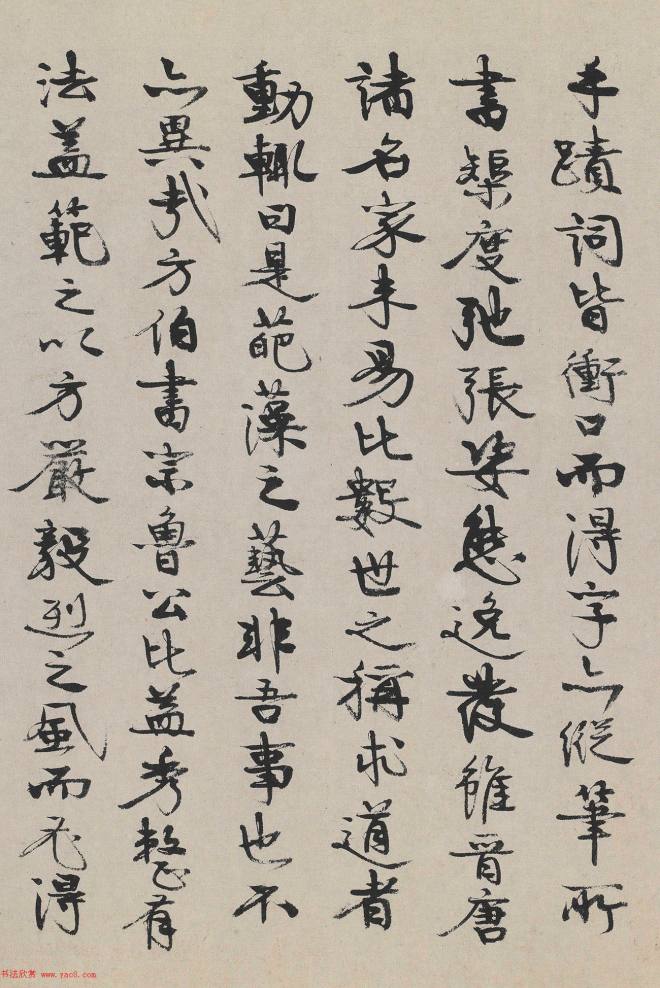 手蹟詞皆衝口而得字亦縱筆所
書榘度弛張姿態逸發雖晉唐
諸名家未易比數世之稱求道者
動輒曰是葩藻之藝非吾事也不
亦異哉方伯書宗魯公比益秀整有
法蓋範之以方嚴毅烈之風而尤得
书法欣赏 www.yac8.com